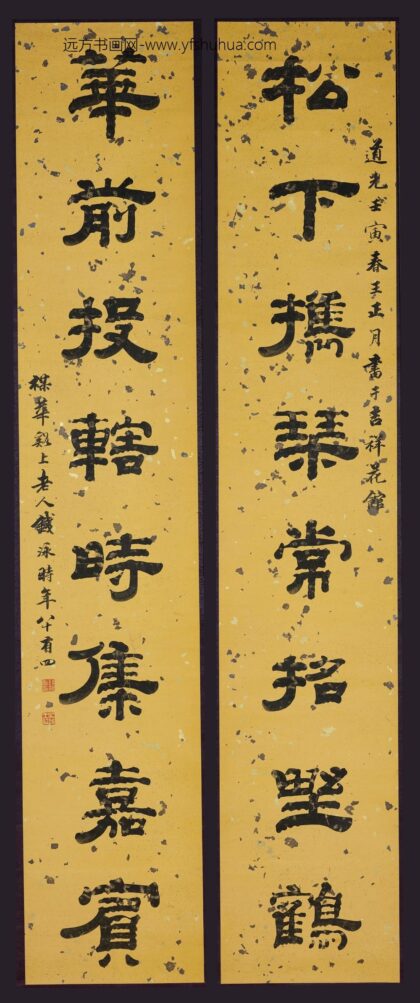 远方书画网-www.yfshuhua.com
松下攜琴常招埜鶴
道光壬寅春王正月書于吉祥花館
華前投轄時集嘉賓
楳華谿上老人錢泳時年八十有四